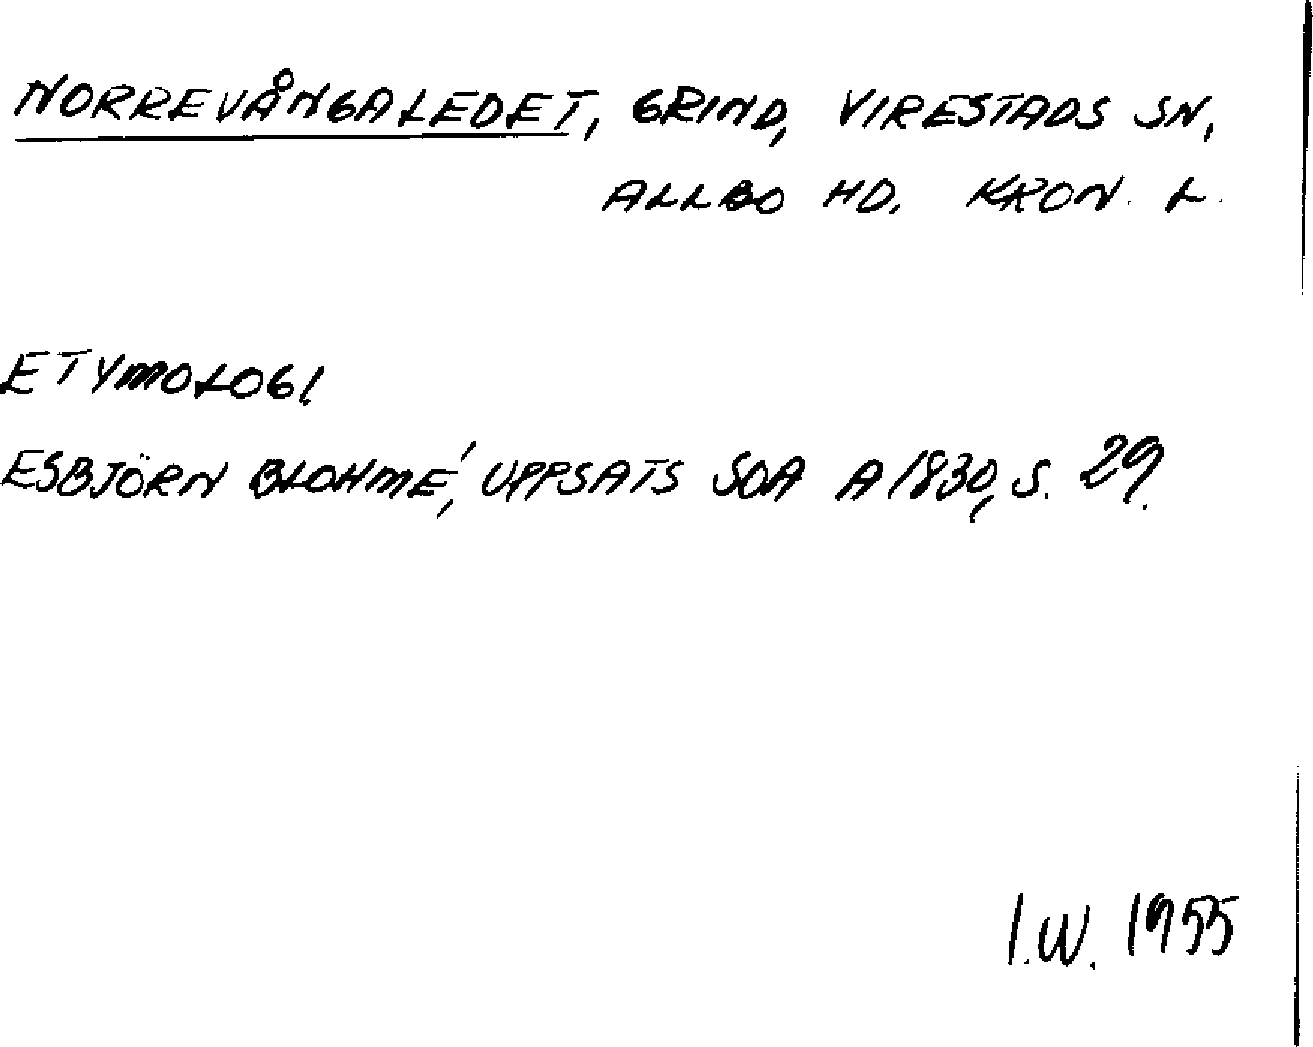 NORREVÅNGALEDET, GRIND, VIRESTADS SN,
ALLBO HD. KRON. L.
ETYMOLOGI
ESBJÖRN BLOHMÉ, UPPSATS SOA A 1830, S. 29.
I.W. 1955